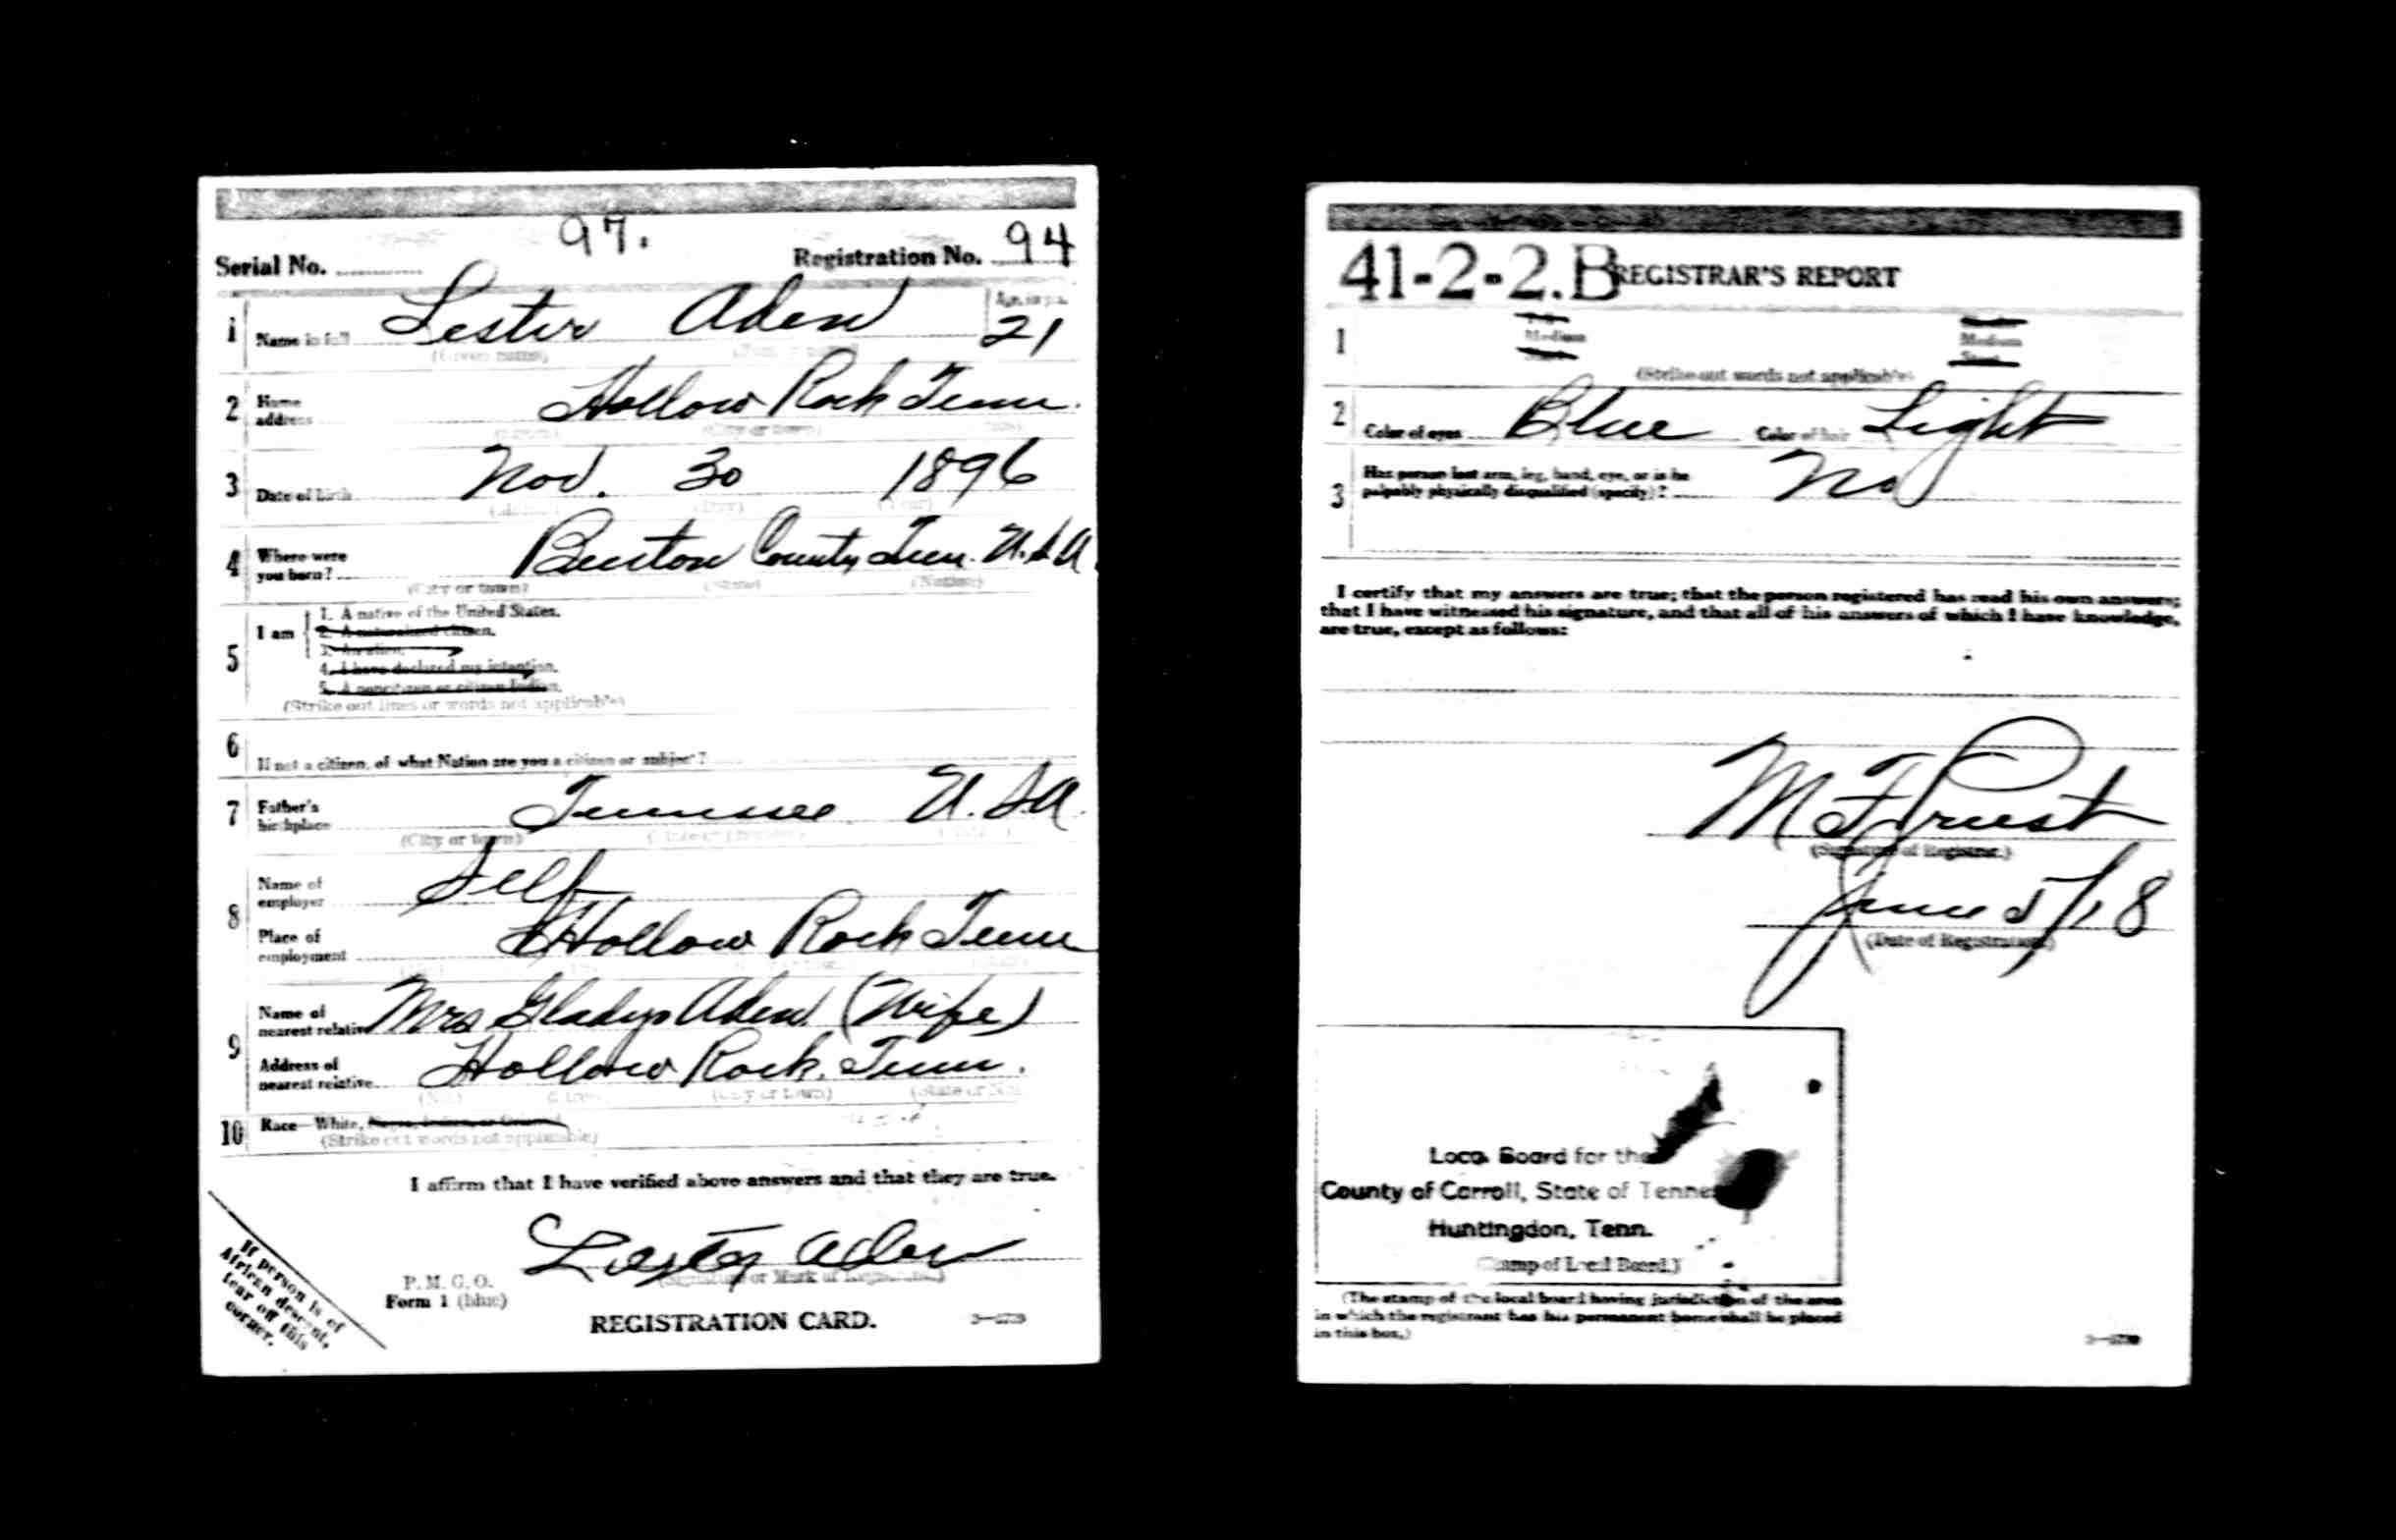 97.
Serial No. Registration No. 94
1 Name in full Lester Aden Age, in yrs. 21
(Given name) (Family name)
2 Home address Hollow Rock Tenn.
(City or town)
3 Date of birth Nov. 30 1896
(Month) (Day) (Year)
4 Where were you born? Benton County Tenn. U.S.A.
(City or town) (State) (Nation)
5 I am
1. A native of the United States.
2. A naturalized citizen.
3. An alien.
4. I have declared my intention.
5. A noncitizen or citizen Indian.
(Strike out lines or words not applicable)
6 If not a citizen, of what Nation are you a citizen or subject?
7 Father's birthplace Tennessee U.S.A.
(City or town) (State or province)
8 Name of employer Self
Place of employment Hollow Rock Tenn
9 Name of nearest relative Mrs Gladys Aden (Wife)
Address of nearest relative Hollow Rock, Tenn.
(No.) (City or town) (State or
10 Race—White, Negro, Indian, or Oriental
(Strike out words not applicable)
I affirm that I have verified above answers and that they are true.
Lester Aden
(Signature or Mark of Registrant.)
P. M. G. O.
Form 1 (blue)
REGISTRATION CARD.
If person is of
African descent,
tear off this
corner.
41-2-2.B REGISTRAR'S REPORT
1 Medium Medium
(Strike out words not applicable)
2 Color of eyes Blue Color of hair Light
3 Has person lost arm, leg, hand, eye, or is he
palpably physically disqualified (specify)? No
I certify that my answers are true; that the person registered has read his own answers;
that I have witnessed his signature, and that all of his answers of which I have knowledge,
are true, except as follows:
(Signature of Registrar.)
June 5/18
(Date of Registration)
Local Board for the
County of Carroll, State of
Huntingdon, Tenn.
(Stamp of Local Board.)
(The stamp of the local board having jurisdiction of the area
in which the registrant has his permanent home shall be placed
in this box.)